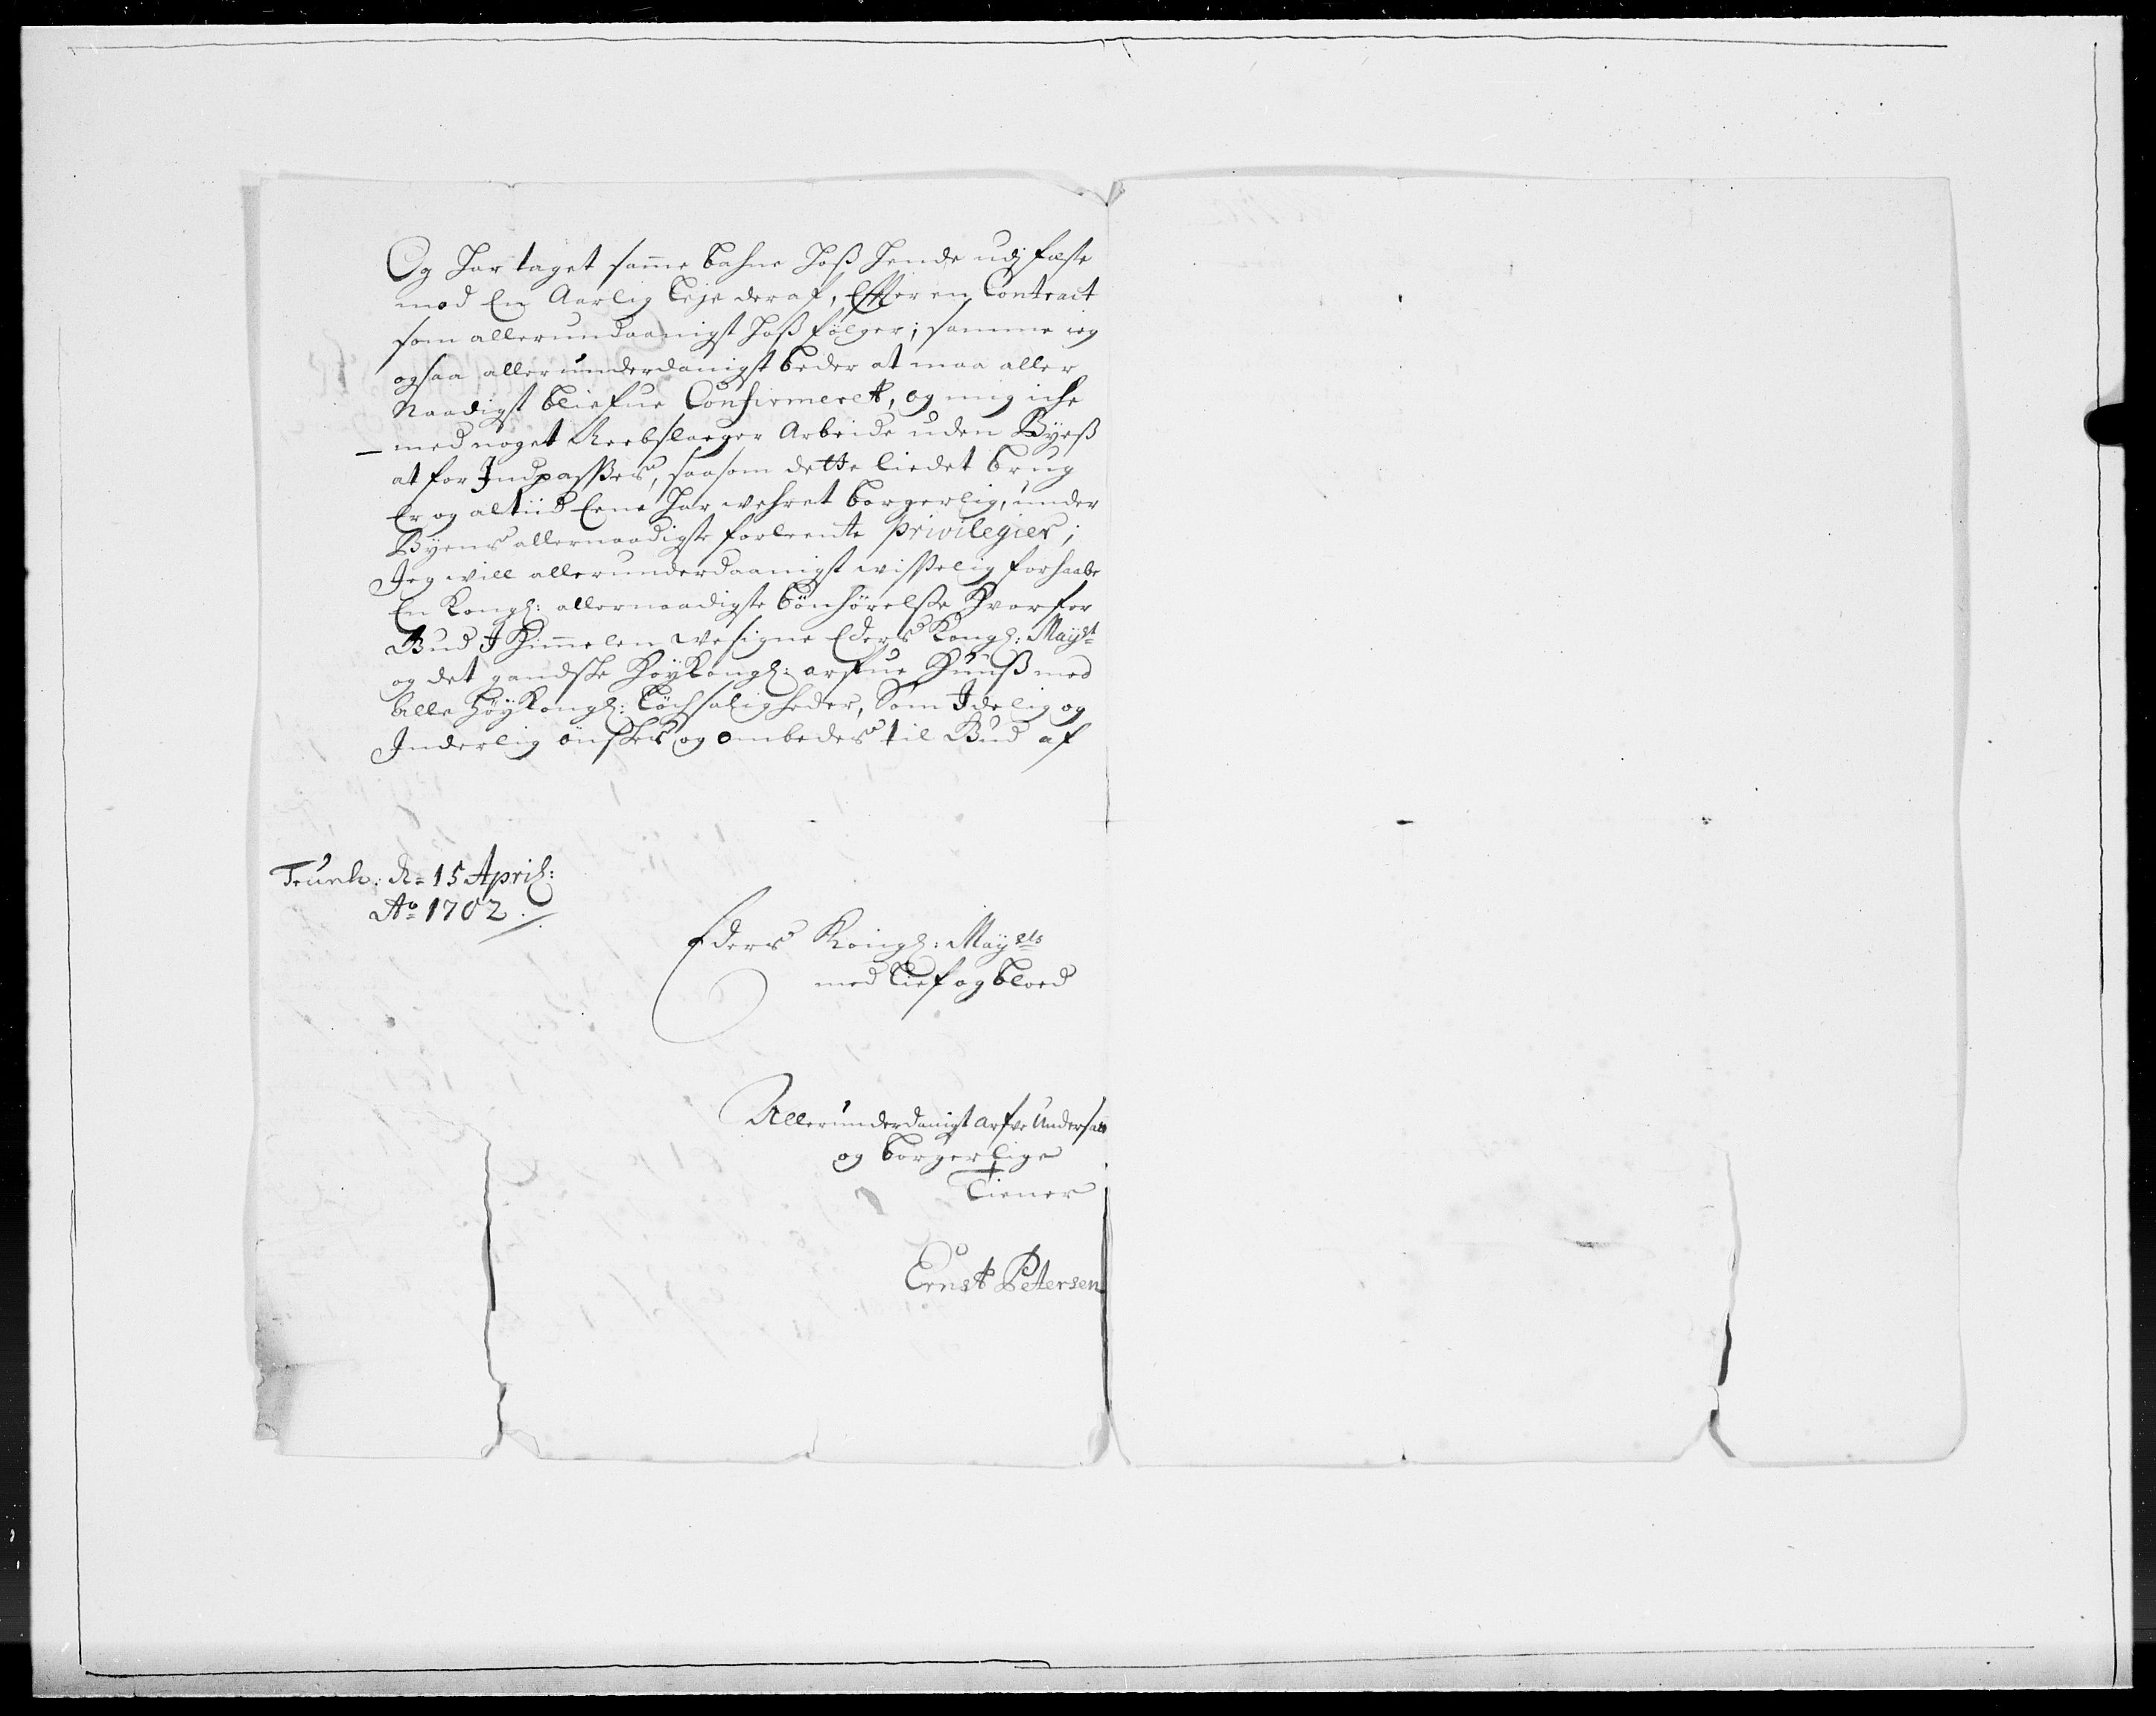 Og har taget samme bahne hoß hende udj fæste
mod En Aarlig leje deraf, Effter en Contract
som allerundaanigst hoß følger; samme ieg
ogsaa allerunderdanigst beder at maa aller
Naadigst bliefue Confirmeret, og mig iche
med noget Reebslager Arbeide uden Byeß
at for Indpasses, saasom dette liedet brug
Er og altiid Eene har wehret borgerlig, under
Byens allernaadigste forleente privilegier;
Jeg will allerunderdaanigst wisselig forhaabe
En Kongl: allernaadigste bönhörelsse hvorfor
Gud I Himmelen welsigne Eders Kongl: Mayst
og det gandske höyKongl: arfue Huuß med
Alle HöyKongl: löchsaligheder, Som Idelig og
Inderlig önskes og ombedes til Gud af
Trunh: d. 15 April:
Ao 1702 ./.
Eders Kongl: Mayets
med lief og bloed
Allerunderdanigst arfve Undersaat
og borgerlige
Tiener
Ernst Petersen